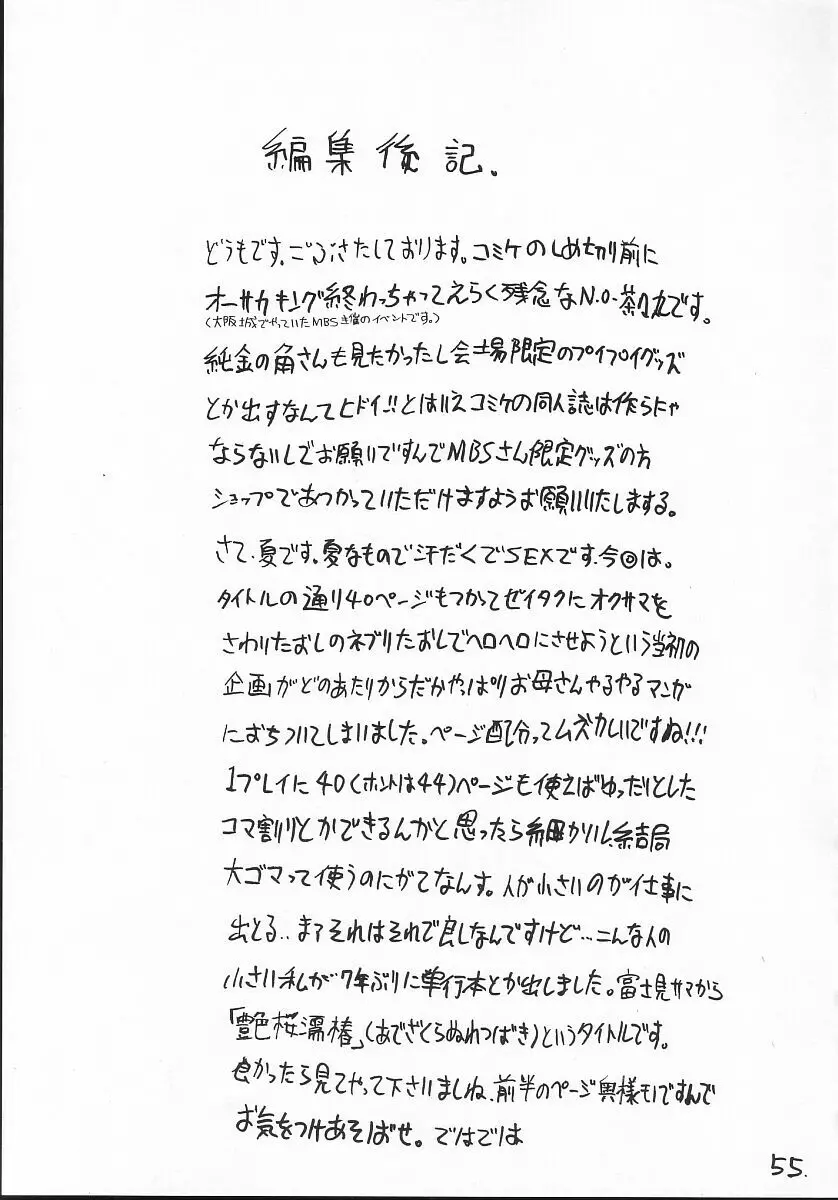 編集後記.
どうもです、ごぶさたしております。コミケのしめ切り前に
オーサカキング終わっちゃってえらく残念なN.O-茶々丸です。
(大阪城でやっていたMBS主催のイベントです。)
純金の角さんも見たかったし会場限定のプイプイグッズ
とか出すなんてヒドイ!!とはいえコミケの同人誌は作らにゃ
ならないしでお願いですんでMBSさん限定グッズの方
ショップであつかっていただけますようお願いいたしまする。
さて、夏です。夏なもので汗だくでSEXです.今回は。
タイトルの通り40ページもつかってゼイタクにオクサマを
さわりたおしのネブリたおしでヘロヘロにさせようという当初の
企画がどのあたりからだかやっぱりお母さんやるやるマンガ
におちついてしまいました。ページ配分ってムズカしいですね!!!
1プレイに40(ホントは44)ページも使えばゆったりとした
コマ割りとかができるんかと思ったら細かいし、結局
大ゴマって使うのにがてなんす。人が小さいのが仕事に
出とる..まァそれはそれで良しなんですけど…こんな人の
小さい私が7年ぶりに単行本とか出しました。富士見サマから
「艶桜濡椿」(あでざくらぬれつばき)というタイトルです。
良かったら見てやって下さいましね、前半のページ奥様モノですんで
お気をつけあそばせ。ではでは
55.